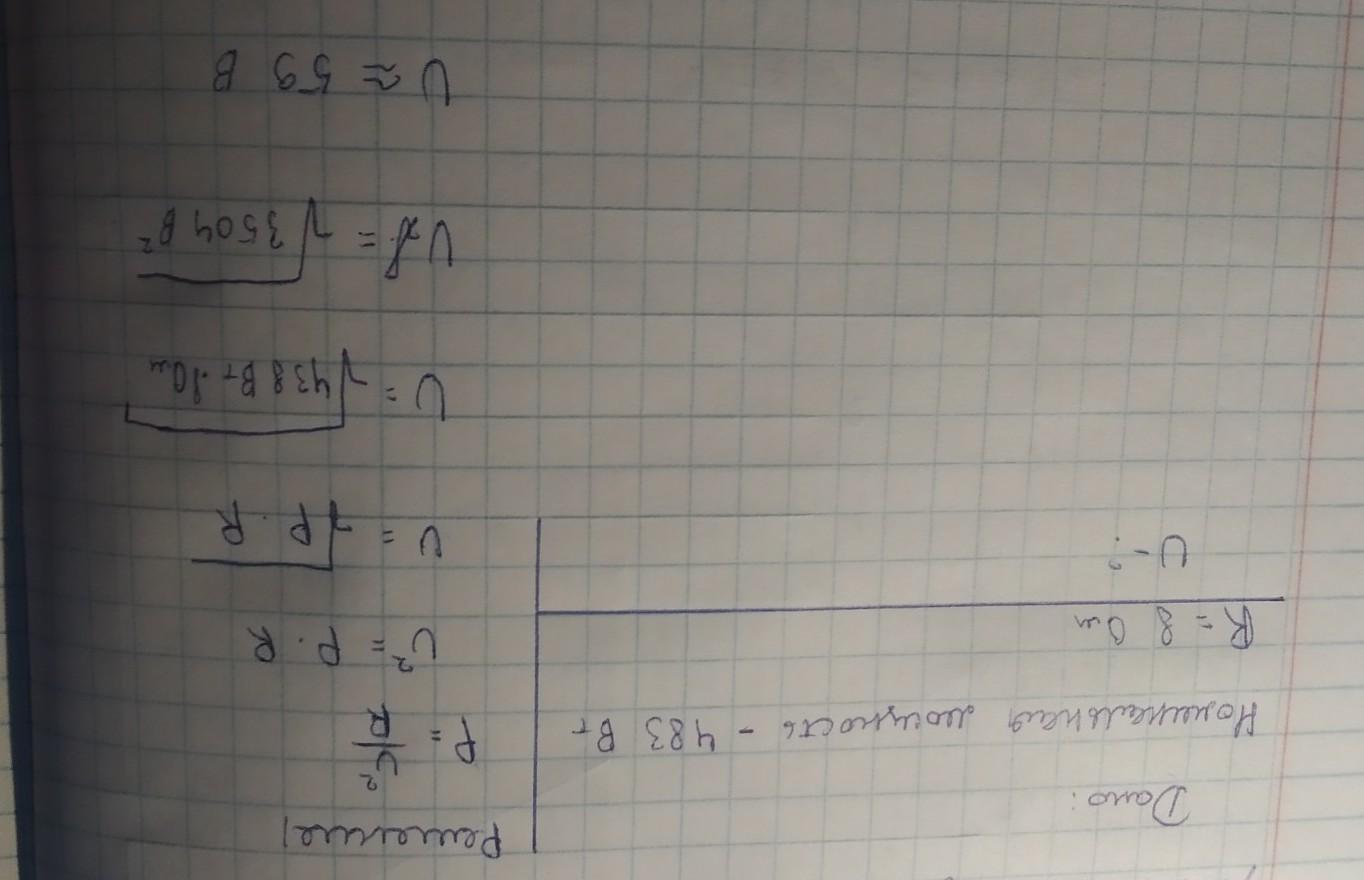 Дано:
Номинальная мощность - 483 Вт
R = 8 Ом
U - ?
Решение
P = U²/R
U² = P · R
U = √P · R
U = √438 Вт · 8 Ом
U = √3504 В²
U ≈ 59 В